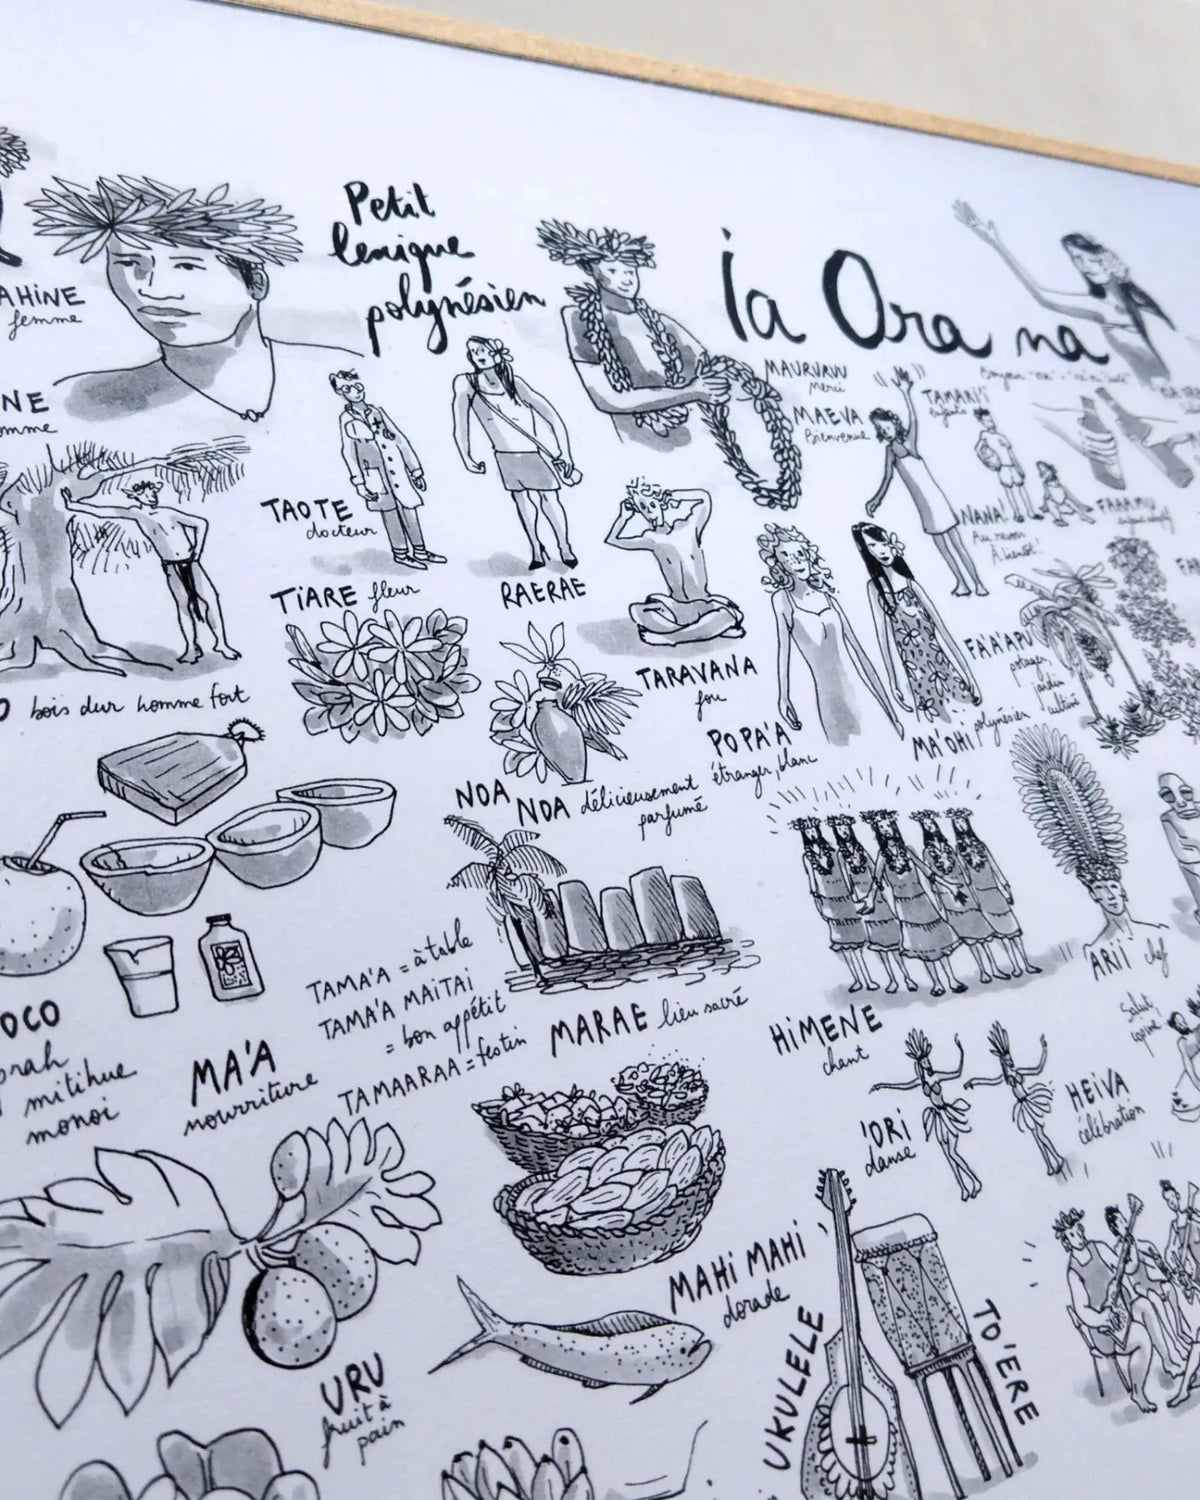 Petit
lexique
polynésien
Ia Ora na
AHINE
femme
NE
omme
MAURURU
merci
MAEVA
Bienvenue
TAMARII
enfants
NANA!
Au revoir
À bientôt!
FAAAMU
TAOTE
docteur
TIARE fleur
RAERAE
TARAVANA
fou
FA'A'APU
potager,
jardin
cultivé
POPA'A
étranger, blanc
MA'OHI polynésien
O bois dur homme fort
NOA NOA délicieusement
parfumé
TAMA'A = à table
TAMA'A MAITAI
= bon appétit
TAMAARAA = festin
MARAE lieu sacré
ARII chef
HIMENE
chant
'ORI
danse
HEIVA
célébration
Salut
OCO
prah
mitihue
monoi
MA'A
nourriture
MAHI MAHI
dorade
URU
fruit à
pain
UKULELE
TO'ERE